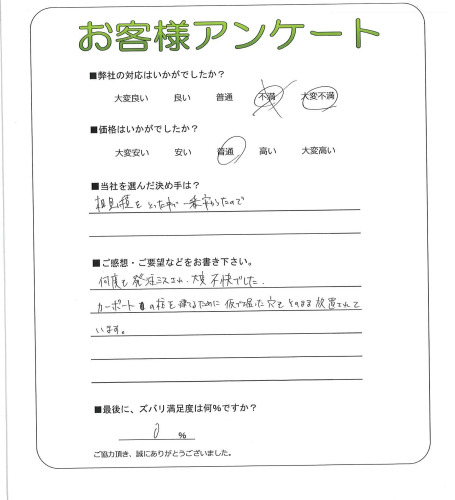 お客様アンケート
■弊社の対応はいかがでしたか?
大変良い 良い 普通 不満 大変不満
■価格はいかがでしたか?
大変安い 安い 普通 高い 大変高い
■当社を選んだ決め手は?
相見積をとった中で一番安かったので
■ご感想・ご要望などをお書き下さい。
何度も発注ミスされ、大変不快でした。
カーポートの柱を建るために仮で掘った穴をそのまま放置されて
います。
■最後に、ズバリ満足度は何%ですか?
0 %
ご協力頂き、誠にありがとうございました。